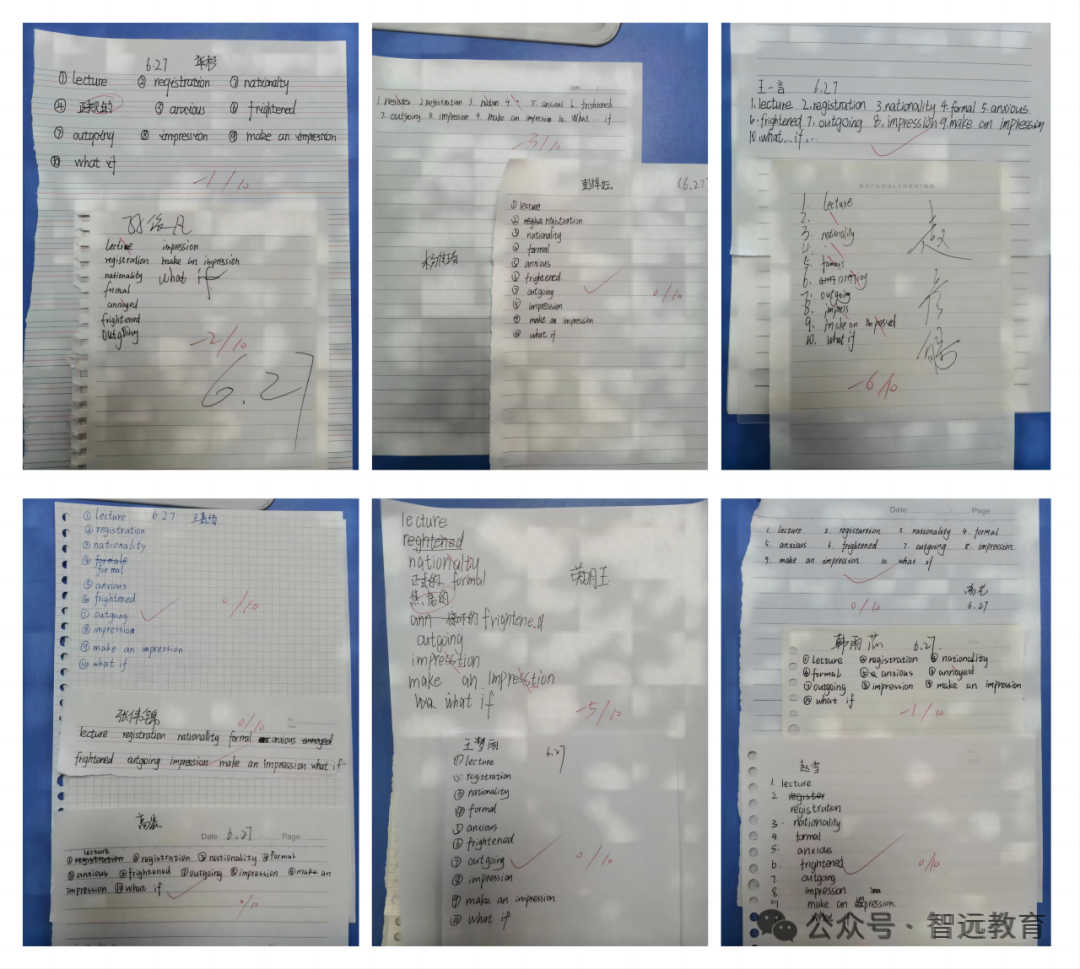 6.27
① lecture ② registration ③ nationality
④ 正规的 ⑤ anxious ⑥ frightened
⑦ outgoing ⑧ impression ⑨ make an impression
⑩ what if
-1/10
lecture impression
registration make an impression
nationality what if
formal
annoyed
frightened
outgoing
-2/10
6.27
2.registration
5. anxious 6. frightened
7. outgoing 8. impression 9. make an impression 10. What... if
-3/10
(6.27
① lecture
② registration
③ nationality
④ formal
⑤ anxious
⑥ frightened
⑦ outgoing
⑧ impression
⑨ make an impression
⑩ what if
0/10
王一言 6.27
1.lecture 2.registration 3.nationality 4.formal 5.anxious
6.frightened 7.outgoing 8.impression 9.make an impression
10.what...if...
1. lecture
2.
3. nationality
4.
5.
6.
7. outgoing
8. impress
9. make an
10. what if
-6/10
① lecture 6.27
② registration
③ nationality
④ formal
⑤ anxious
⑥ frightened
⑦ outgoing
⑧ impression
⑨ make an impression
⑩ what if
0/10
张伟锦
0/10
lecture registration nationality formal anxious annoyed
frightened outgoing impression make an impression what if
Date: 6.27 Page:
lecture
① registration ② registration ③ nationality ④ formal
⑤ anxious ⑥ frightened ⑦ outgoing ⑧ impression ⑨ make an
impression ⑩ what if
0/10
lecture
reghtened
nationalty
正式的 formal
焦虑的
ann frightened
outgoing
impresstion
make an impresstion
what if
-5/10
王梦雨 6.27
① lecture
② registration
③ nationality
④ formal
⑤ anxious
⑥ frightened
⑦ outgoing
⑧ impression
⑨ make an impression
⑩ what if
0/10
Date: Page:
1. lecture 2. registartion 3. nationality 4. formal
5. anxious 6. frightened 7. outgoing 8. impression
9. make an impression 10. what if
0/10
6.27
韩雨芯 6.27.
① lecture ② registration ③ nationality
④ formal ⑤ anxious ⑥ annoyed
⑦ outgoing ⑧ impression ⑨ make an impression
⑩ what if
-1/10
1. lecture
2. register
registration
3. nationality
4. formal
5. anxious
6. frightened
7. outgoing
8. impression
9. make an impression
0/10
公众号 · 智远教育